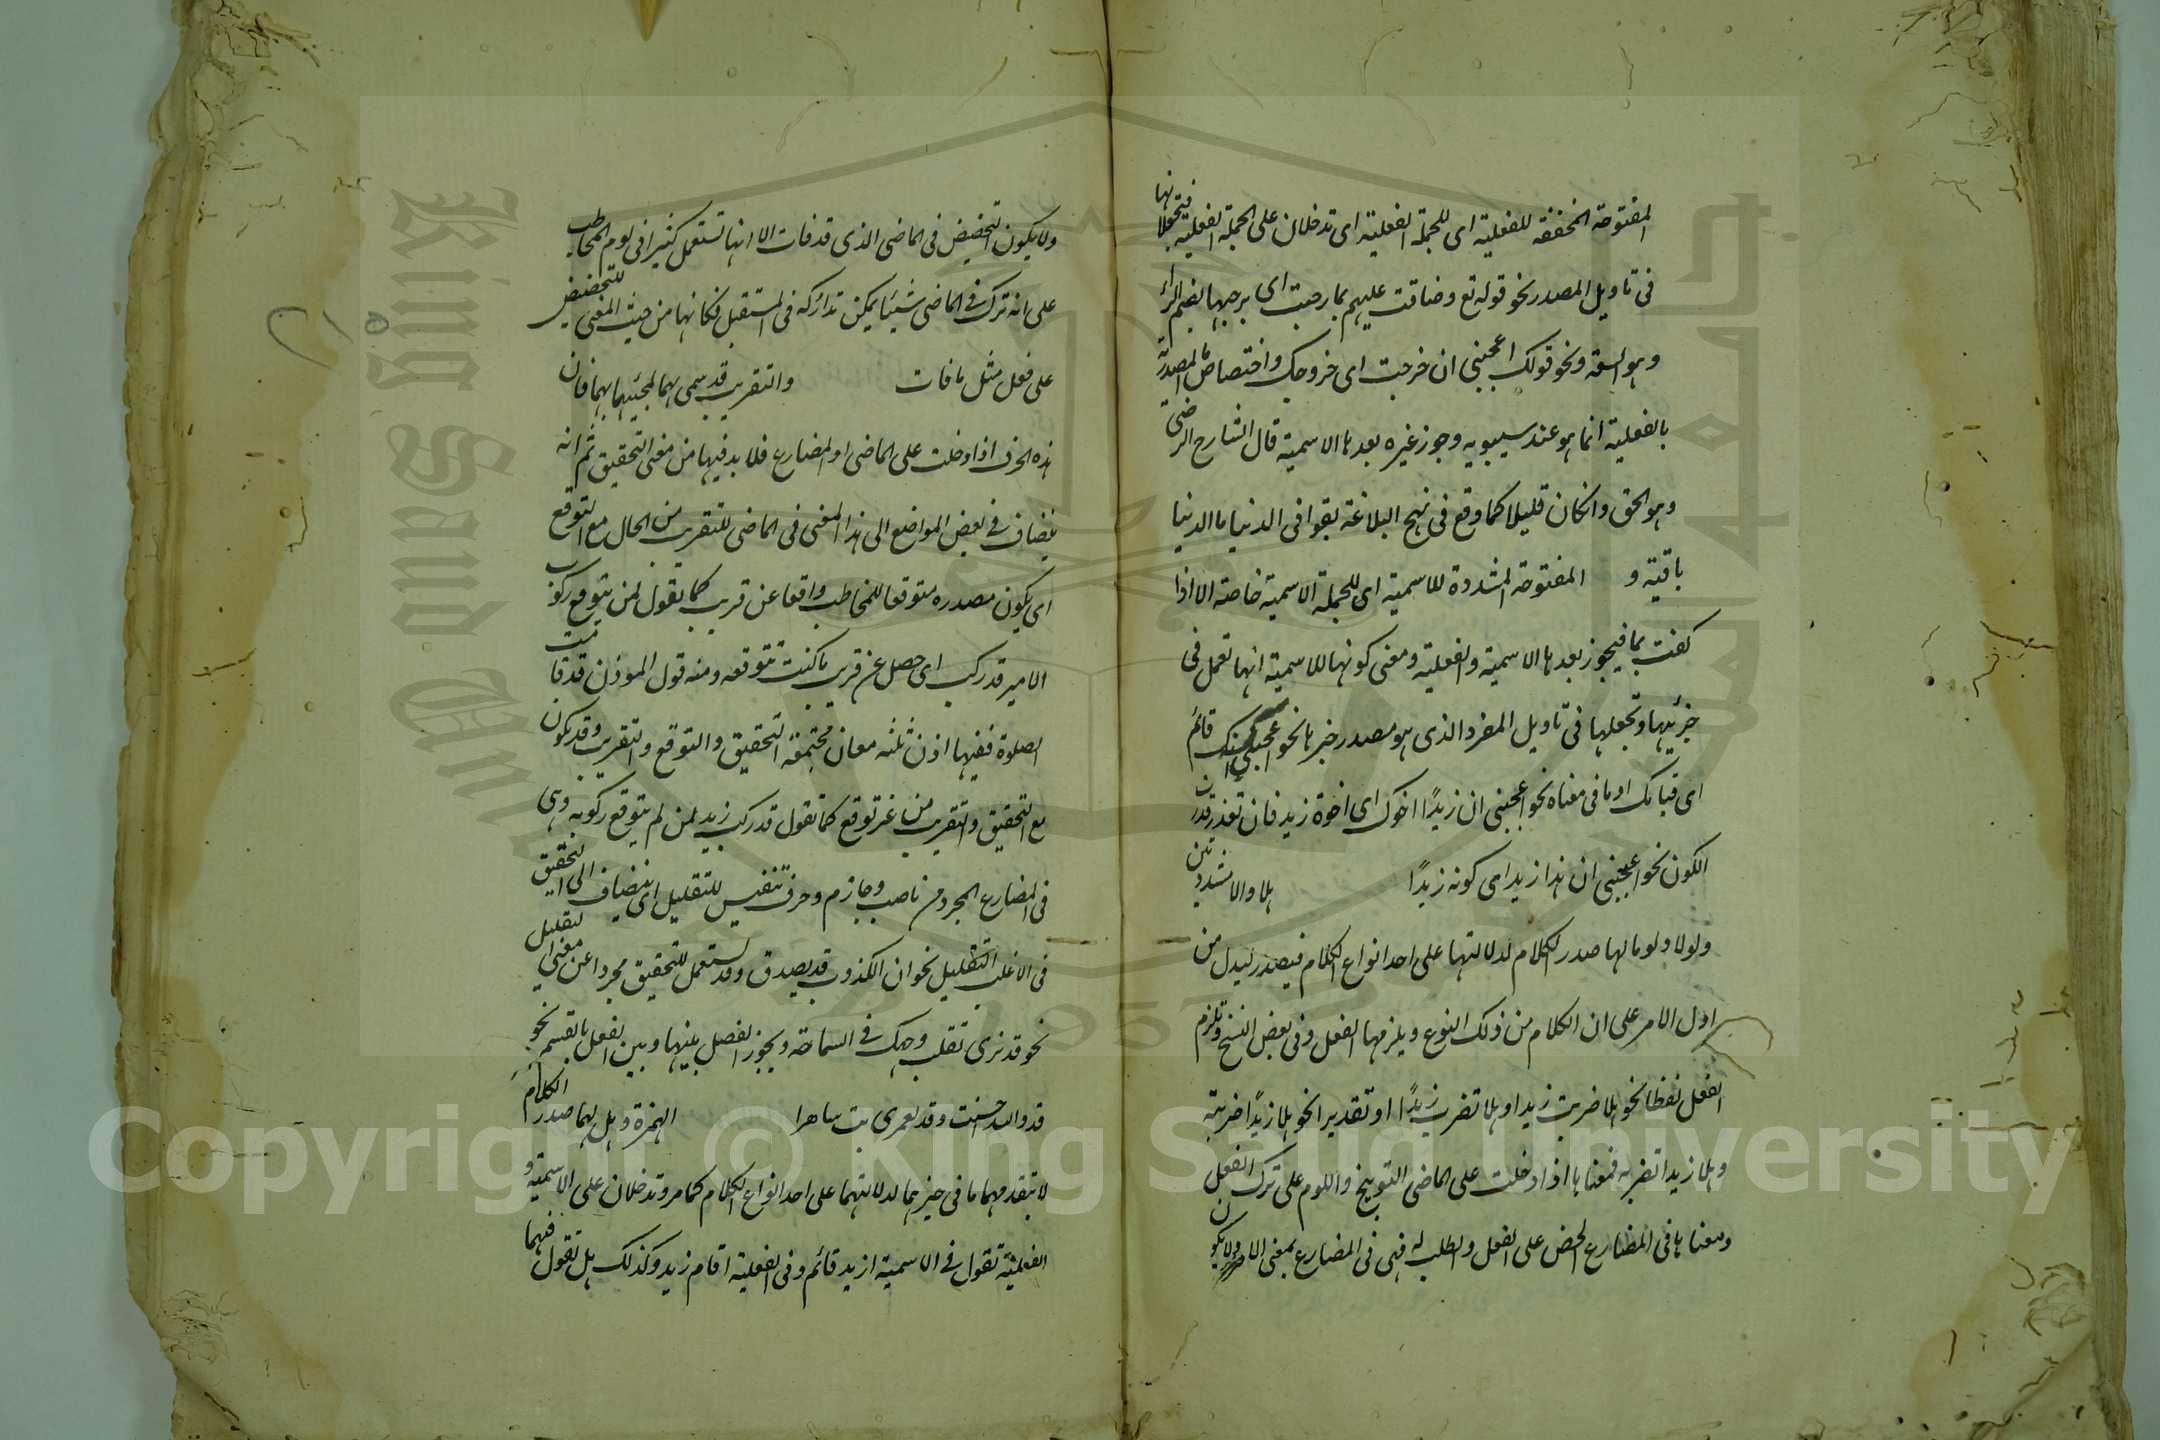 المفتوحة المخففه للفعلية اى للجملة الفعلية اى تدخلان على الجملة الفعلية فتجعلانها
فى تاويل المصدر نحو قوله تع وضاقت عليهم بما رحبت اى برحبها بضم الراء
وهو السعة ونحو قولك اعجبنى ان خرجت اى خروجك واختصاص ما المصدرية
بالفعلية انما هو عند سيبويه وجوز غيره بعدها الاسمية قال الشارح الرضى
وهو الحق وانكان قليلا كما وقع فى نهج البلاغة بقوا فى الدنيا ما الدنيا
باقية و المفتوحة المشددة للاسمية اى للجملة الاسمية خاصة الا اذا
كفت بما فيجوز بعدها الاسمية والفعلية ومعنى كونها للاسمية انها تعمل فى
جزئيها وتجعلها فى تاويل المفرد الذى هو مصدر خبرها نحو اعجبنى انك قائم
اى قيامك او ما فى معناه نحو اعجبنى ان زيدًا اخوك اى اخوة زيد فان تعذر قدرت
الكون نحو اعجبنى ان هذا زيد اى كونه زيدًا هلا والا مشددتين
ولولا ولوما لها صدر الكلام لدلالتها على احد انواع الكلام فيصدر ليدل من
اول الامر على ان الكلام من ذلك النوع ويلزمها الفعل وفى بعض النسخ وتلزم
الفعل لفظا نحو هلا ضربت زيدا وهلا تضرب زيدًا او تقديرا نحو هلا زيدًا ضربته
وهلا زيدا تضربه فمعناها اذا دخلت على الماضى التوبيخ واللوم على ترك الفعل
ومعناها فى المضارع الحض على الفعل والطلب له فهى فى المضارع بمعنى الامر ولا يكون
ولا يكون التحضيض فى الماضى الذى قد فات الا انها تستعمل كثيرا فى لوم المخاطب
على انه ترك فى الماضى شيئا يمكن تداركه فى المستقبل فكانها من حيث المعنى للتحضيض
على فعل مثل ما فات والتقريب قد سمى بهما لمجيئهما بهما فان
هذه الحرف اذا دخلت على الماضى او المضارع فلا بد فيها من معنى التحقيق ثم انه
ينضاف فى بعض المواضع الى هذا المعنى فى الماضى للتقريب من الحال مع التوقع
اى يكون مصدره متوقعا للمخاطب واقعا عن قريب كما تقول لمن يتوقع ركوب
الامير قد ركب اى حصل عن قريب ما كنت تتوقعه ومنه قول الموذن قد قامت
الصلوة ففيها اذن ثلثه معان مجتمعة التحقيق والتوقع والتقريب وقد يكون
مع التحقيق والتقريب من غير توقع كما تقول قد ركب زيد لمن لم يتوقع ركوبه وهى
فى المضارع المجرد من ناصب وجازم وحرف تنفيس للتقليل اى ينضاف الى التحقيق
فى الاغلب التقليل نحو ان الكذوب قد يصدق وقد تستعمل للتحقيق مجردا عن معنى التقليل
نحو قد نرى تقلب وجهك فى السماء ويجوز الفصل بينها وبين الفعل بالقسم نحو
قد والله احسنت وقد لعمرى بت ساهرا الهمزة وهل لهما صدر الكلام
لا يتقدمهما ما فى حيزهما لدلالتهما على احد انواع الكلام كما مر وتدخلان على الاسمية و
الفعلية تقول فى الاسمية ازيد قائم وفى الفعلية اقام زيد وكذلك هل تقول فيهما
Copyright © King Saud University
King Saud
1957